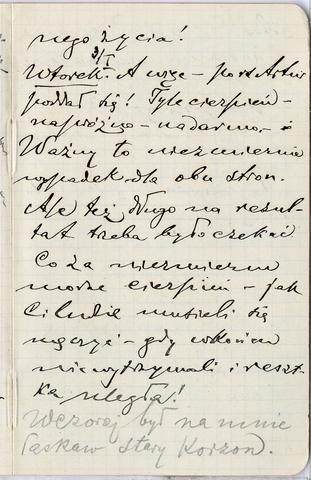 nego życia!
3/I
Wtorek. A więc – port Artur
poddał się! Tyle cierpień –
na próżno – nadarmo. – i
Ważny to niezmiernie
wypadek dla obu stron.
Ale też długo na rezul-
tat trzeba było czekać
Co za niezmierne
morze cierpień – jak
Ci ludzie musieli się
męczyć – gdy wkońcu
nie wytrzymali i reszt-
ka uległa!
Wczoraj był na mnie
łaskaw stary Korzon.